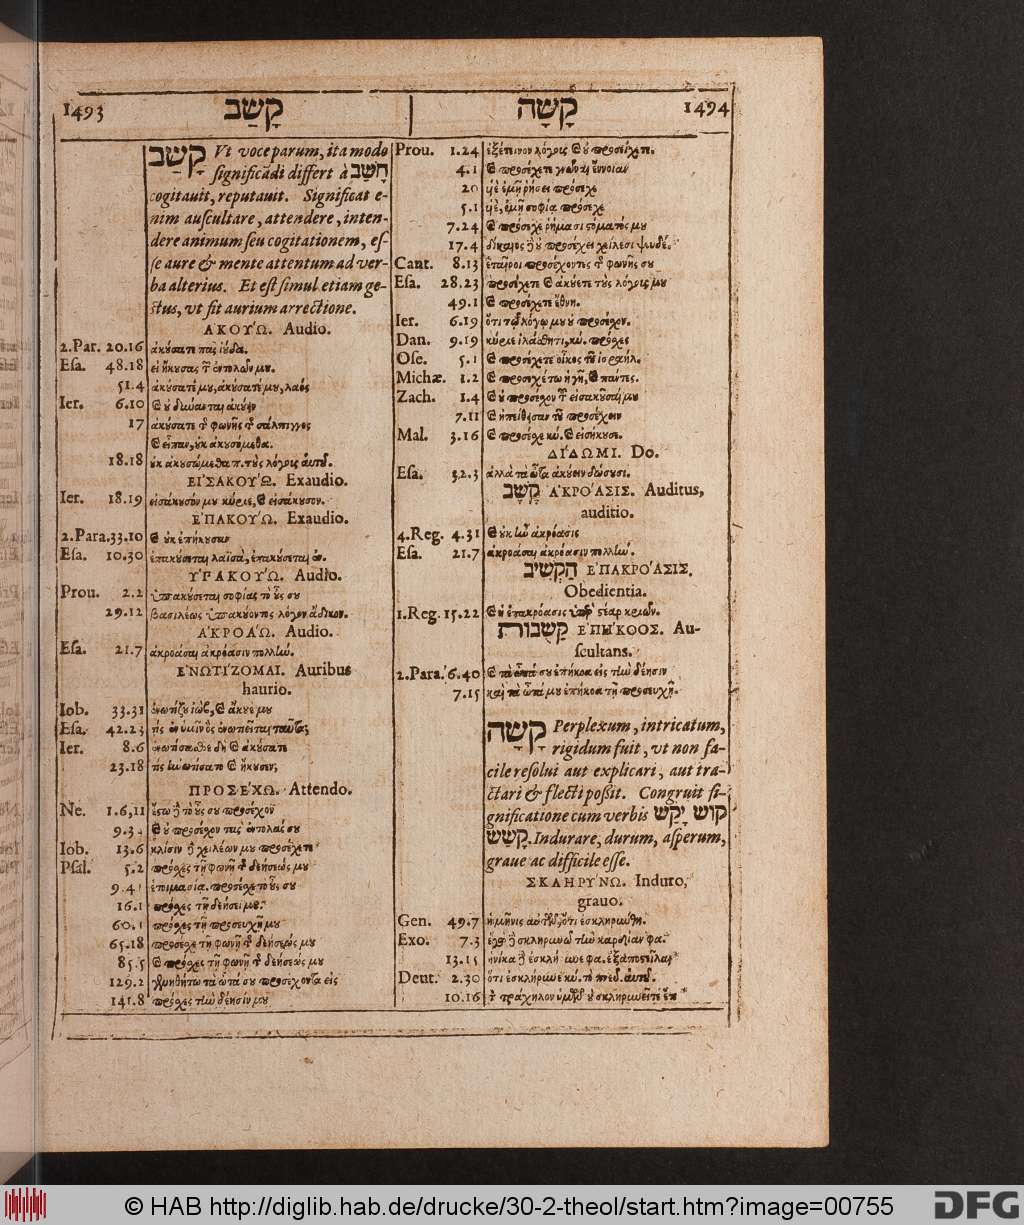 1493 קָשַׁב
קָשָׁה 1494
קָשַׁב Vt voce parum, ita modo
significādi differt à חָשַׁב
cogitauit, reputauit. Significat e-
nim auscultare, attendere, inten-
dere animum seu cogitationem, es-
se aure & mente attentum ad ver-
ba alterius. Et est simul etiam ge-
stus, vt sit aurium arrectione.
ἈΚΟΎΩ. Audio.
2.Par. 20.16 ἀκούσατε πᾶς ἰούδα.
Esa. 48.18 εἰ ἤκουσας τῶν ἐντολῶν μου.
51.4 ἀκούσατέ μου, ἀκούσατέ μου, λαός
Ier. 6.10 καὶ οὐ δύνανται ἀκούειν
17 ἀκούσατε τῆς φωνῆς τῆς σάλπιγγος
καὶ εἶπαν, οὐκ ἀκουσόμεθα.
18.18 οὐκ ἀκουσόμεθα π. τοὺς λόγους αὐτοῦ.
ΕἸΣΑΚΟΎΩ. Exaudio.
Ier. 18.19 εἰσάκουσόν μου κύριε, καὶ εἰσάκουσον.
ἘΠΑΚΟΎΩ. Exaudio.
2.Para. 33.10 καὶ οὐκ ἐπήκουσαν
Esa. 10.30 ἐπακούσεται λαϊσὰ, ἐπακούσεται ἐν.
ὙΠΑΚΟΎΩ. Audio.
Prou. 2.2 ὑπακούσεται σοφίας τὸ οὖς σου
29.12 βασιλέως ὑπακούοντος λόγον ἄδικον.
ἈΚΡΟΆΩ. Audio.
Esa. 21.7 ἀκρόασαι ἀκρόασιν πολλήν.
ἘΝΩΤΊΖΟΜΑΙ. Auribus
haurio.
Iob. 33.31 ἐνωτίζου ἰὼβ, καὶ ἄκουέ μου
Esa. 42.23 τίς ἐν ὑμῖν ὃς ἐνωτιεῖται ταῦτα;
Ier. 8.6 ἐνωτίσασθε δὴ καὶ ἀκούσατε
23.18 τίς ἐνωτίσατο καὶ ἤκουσεν;
ΠΡΟΣΈΧΩ. Attendo.
Ne. 1.6,11 ἔστω δὴ τὸ οὖς σου προσέχον
9.34 καὶ οὐ προσέχον τὰς ἐντολάς σου
Iob. 13.6 κρίσιν δὲ χειλέων μου προσέχετε
Psal. 5.2 πρόσχες τῇ φωνῇ τῆς δεήσεώς μου
9.41 ἑτοιμασία. προσέσχε τὸ οὖς σου
16.1 πρόσχες τῇ δεήσει μου.
60.1 πρόσχες τῇ προσευχῇ μου
65.18 προσέσχε τῇ φωνῇ τῆς δεήσεώς μου
85.5 καὶ πρόσχες τῇ φωνῇ τῆς δεήσεώς μου
129.2 γενηθήτω τὰ ὦτά σου προσέχοντα εἰς
141.8 πρόσχες τὴν δέησίν μου
Prou. 1.24 ἐξέτεινον λόγους καὶ οὐ προσείχετε.
4.1 καὶ προσέχετε γνῶναι ἔννοιαν
20 υἱὲ ἐμῇ ῥήσει πρόσεχε
5.1 υἱὲ, ἐμῇ σοφίᾳ πρόσεχε
7.24 καὶ πρόσεχε ῥήμασι στόματός μου
17.4 δίκαιος δὲ οὐ προσέχει χείλεσι ψευδέ.
Cant. 8.13 ἑταῖροι προσέχοντες τῇ φωνῇ σου
Esa. 28.23 προσέχετε καὶ ἀκούετε τοὺς λόγους μου
49.1 καὶ προσέχετε ἔθνη.
Ier. 6.19 ὅτι τῷ λόγῳ μου οὐ προσέχον.
Dan. 9.19 κύριε ἱλάσθητι, κύ. πρόσχες
Ose. 5.1 καὶ προσέχετε οἶκος τοῦ ἰσραήλ.
Michæ. 1.2 καὶ προσεχέτω ἡ γῆ, καὶ πάντες.
Zach. 1.4 καὶ οὐ προσέχον τοῦ εἰσακοῦσαί μου
7.11 καὶ ἠπείθησαν τοῦ προσέχειν
Mal. 3.16 καὶ προσέσχε κύ. καὶ εἰσήκουσε.
ΔΊΔΩΜΙ. Do.
Esa. 32.3 ἀλλὰ τὰ ὦτα ἀκούειν δώσουσι.
קֶשֶׁב ἈΚΡΌΑΣΙΣ. Auditus,
auditio.
4.Reg. 4.31 καὶ οὐκ ἦν ἀκρόασις
Esa. 21.7 ἀκρόασαι ἀκρόασιν πολλήν.
הַקְשִׁיב ἘΠΑΚΡΌΑΣΙΣ.
Obedientia.
1.Reg. 15.22 καὶ ἡ ἐπακρόασις ὑπὲρ στέαρ κριῶν.
קַשֻּׁבוֹת ἘΠΉΚΟΟΣ. Au-
scultans.
2.Para. 6.40 καὶ τὰ ὦτά σου ἐπήκοα εἰς τὴν δέησιν
7.15 καὶ τὰ ὦτά μου ἐπήκοα τῇ προσευχῇ.
קָשָׁה Perplexum, intricatum,
rigidum fuit, vt non fa-
cile resolui aut explicari, aut tra-
ctari & flecti possit. Congruit si-
gnificatione cum verbis קוש יָקש
קָשש. Indurare, durum, asperum,
graue ac difficile esse.
ΣΚΛΗΡΎΝΩ. Induro,
grauo.
Gen. 49.7 ἡ μῆνις αὐτῶν, ὅτι ἐσκληρύνθη.
Exo. 7.3 ἐγὼ δὲ σκληρυνῶ τὴν καρδίαν φα.
13.15 ἡνίκα δὲ ἐσκλήρυνε φα. ἐξαποστεῖλαι
Deut. 2.30 ὅτι ἐσκλήρυνε κύ. τὸ πνεῦ. αὐτοῦ.
10.16 τὸν τράχηλον ὑμῶν οὐ σκληρυνεῖτε ἔτι
© HAB http://diglib.hab.de/drucke/30-2-theol/start.htm?image=00755
DFG